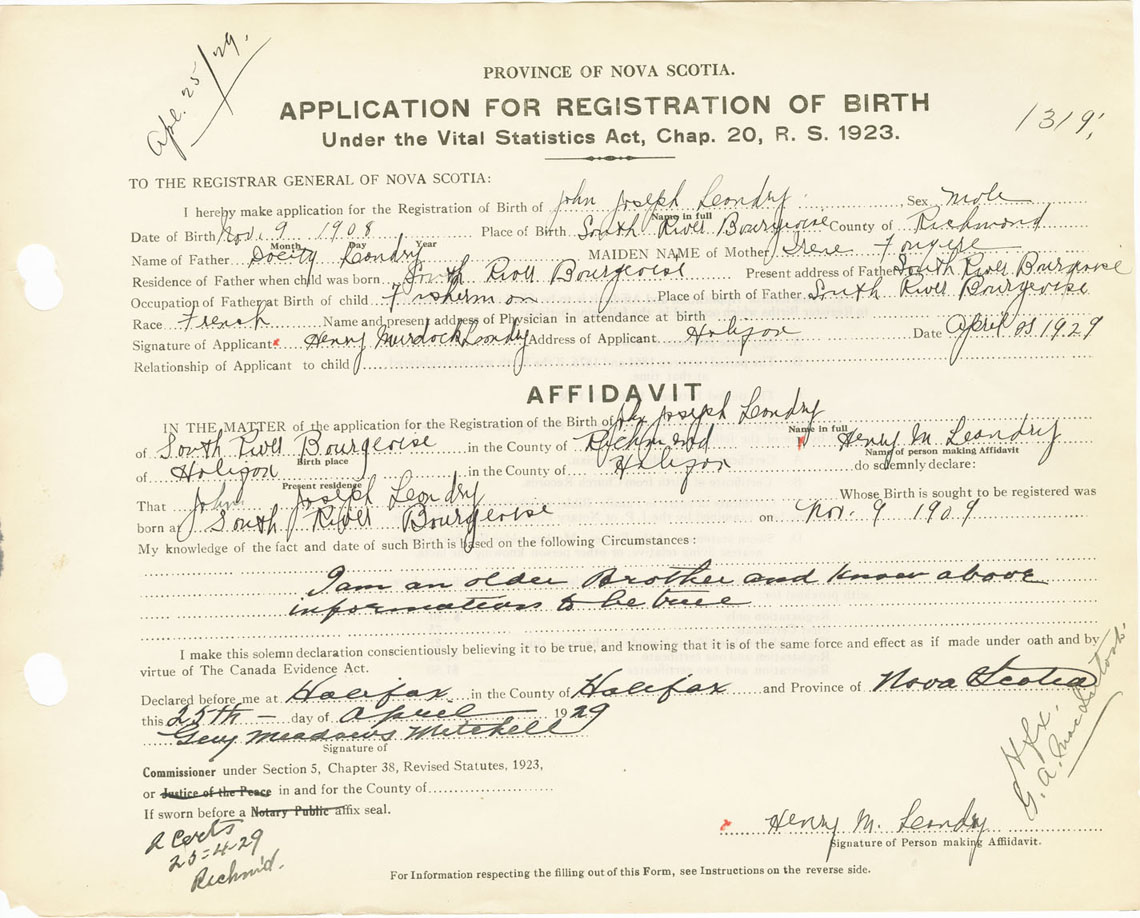 Apl. 25/29.
PROVINCE OF NOVA SCOTIA.
APPLICATION FOR REGISTRATION OF BIRTH
1319,
Under the Vital Statistics Act, Chap. 20, R. S. 1923.
TO THE REGISTRAR GENERAL OF NOVA SCOTIA:
I hereby make application for the Registration of Birth of John Joseph Leondry Sex Male
Name in full
Date of Birth Nov. 9 1908 Place of Birth South River Bourgeoise County of Richmond
Month Day Year
Name of Father Docity Leondry MAIDEN NAME of Mother Irene Fougere
Residence of Father when child was born South River Bourgeoise Present address of Father South River Burgeoise
Occupation of Father at Birth of child Fisherman Place of birth of Father South River Bourgeoise
Race French Name and present address of Physician in attendance at birth
Signature of Applicant Henry Murdock Leondry Address of Applicant Halifax Date April 25 1929
Relationship of Applicant to child
AFFIDAVIT
IN THE MATTER of the application for the Registration of the Birth of John Joseph Leondry
Name in full
of South River Bourgeoise in the County of Richmond I, Henry M. Leondry
Birth place Name of person making Affidavit
of Halifax in the County of Halifax do solemnly declare:
Present residence
That John Joseph Leondry Whose Birth is sought to be registered was
born at South River Bourgeoise on Nov. 9 1909
My knowledge of the fact and date of such Birth is based on the following Circumstances :
I am an older Brother and know above
informations to be true
I make this solemn declaration conscientiously believing it to be true, and knowing that it is of the same force and effect as if made under oath and by
virtue of The Canada Evidence Act.
Declared before me at Halifax in the County of Halifax and Province of Nova Scotia
this 25th - day of April 1929
Geny Meadows Mitchell
Signature of
Commissioner under Section 5, Chapter 38, Revised Statutes, 1923,
or Justice of the Peace in and for the County of
If sworn before a Notary Public affix seal.
2 Certs
25=4-29
Richm'd.
Hfx.
G. A. MacIntosh.
Henry M. Leondry
Signature of Person making Affiidavit.
For Information respecting the filling out of this Form, see Instructions on the reverse side.